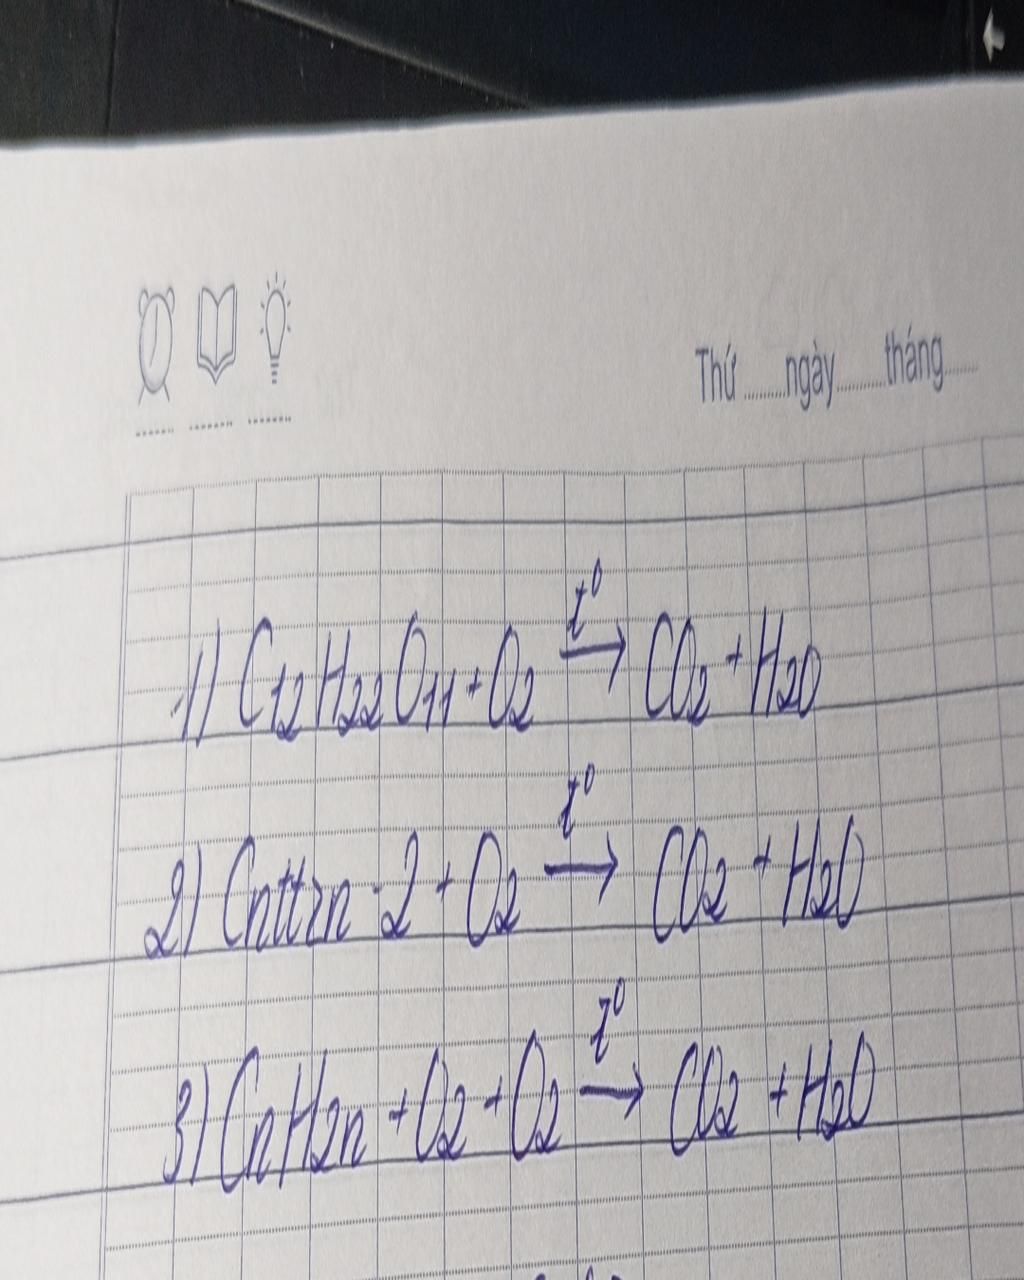 Thứ ........ngày.........tháng......
1) C12H22O11 + O2 t⁰→ CO2 + H2O
2) CnH2n - 2 + O2 t⁰→ CO2 + H2O
3) CnH2n + O2 + O2 t⁰→ CO2 + H2O